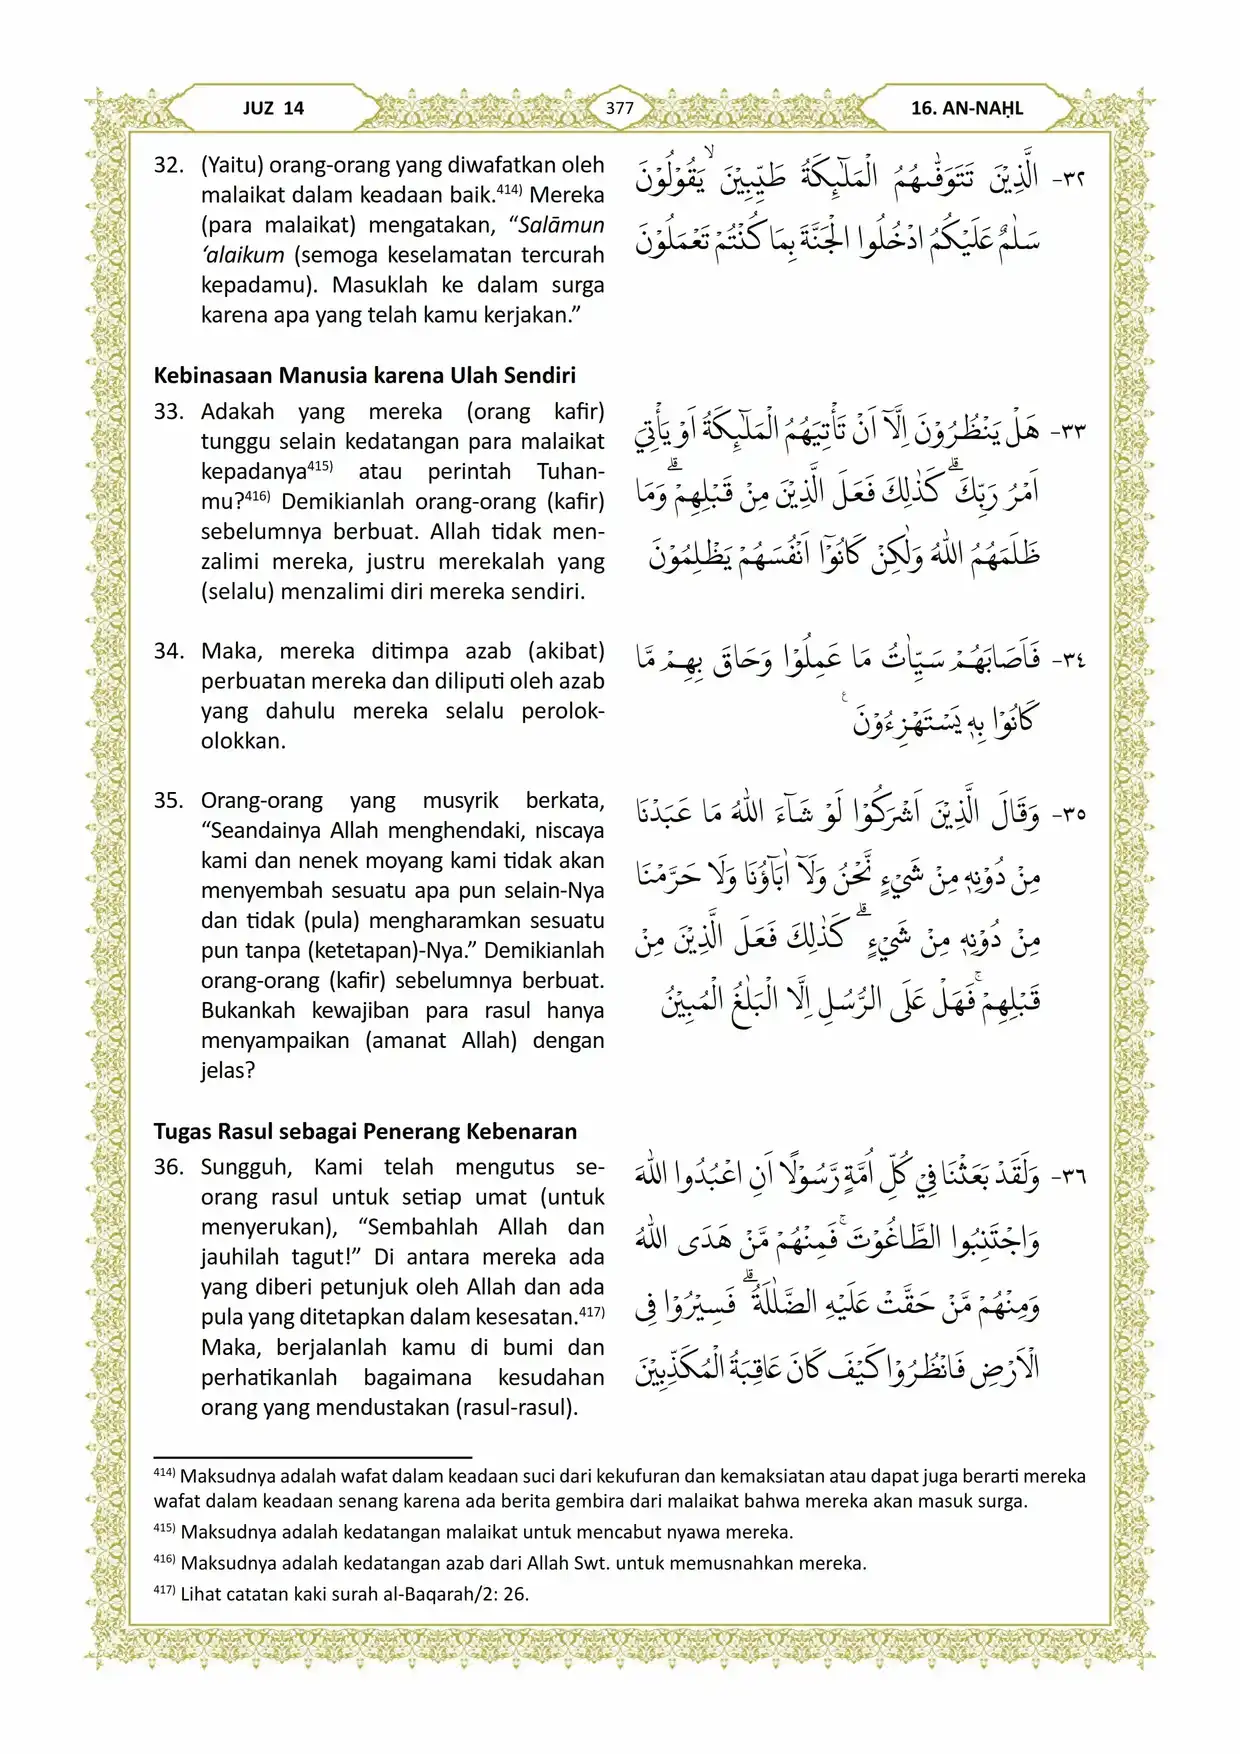 JUZ 14
377
16. AN-NAḤL
32. (Yaitu) orang-orang yang diwafatkan oleh
malaikat dalam keadaan baik.⁴¹⁴⁾ Mereka
(para malaikat) mengatakan, “Salāmun
‘alaikum (semoga keselamatan tercurah
kepadamu). Masuklah ke dalam surga
karena apa yang telah kamu kerjakan.”
٣٢- الَّذِيْنَ تَتَوَفّٰىهُمُ الْمَلٰۤىِٕكَةُ طَيِّبِيْنَ ۙ يَقُوْلُوْنَ
سَلٰمٌ عَلَيْكُمُ ادْخُلُوا الْجَنَّةَ بِمَا كُنْتُمْ تَعْمَلُوْنَ
Kebinasaan Manusia karena Ulah Sendiri
33. Adakah yang mereka (orang kafir)
tunggu selain kedatangan para malaikat
kepadanya⁴¹⁵⁾ atau perintah Tuhan-
mu?⁴¹⁶⁾ Demikianlah orang-orang (kafir)
sebelumnya berbuat. Allah tidak men-
zalimi mereka, justru merekalah yang
(selalu) menzalimi diri mereka sendiri.
٣٣- هَلْ يَنْظُرُوْنَ اِلَّآ اَنْ تَأْتِيَهُمُ الْمَلٰۤىِٕكَةُ اَوْ يَأْتِيَ
اَمْرُ رَبِّكَ ۗ كَذٰلِكَ فَعَلَ الَّذِيْنَ مِنْ قَبْلِهِمْ ۗ وَمَا
ظَلَمَهُمُ اللّٰهُ وَلٰكِنْ كَانُوْٓا اَنْفُسَهُمْ يَظْلِمُوْنَ
34. Maka, mereka ditimpa azab (akibat)
perbuatan mereka dan diliputi oleh azab
yang dahulu mereka selalu perolok-
olokkan.
٣٤- فَاَصَابَهُمْ سَيِّاٰتُ مَا عَمِلُوْا وَحَاقَ بِهِمْ مَّا
كَانُوْا بِهٖ يَسْتَهْزِءُوْنَ ࣖ
35. Orang-orang yang musyrik berkata,
“Seandainya Allah menghendaki, niscaya
kami dan nenek moyang kami tidak akan
menyembah sesuatu apa pun selain-Nya
dan tidak (pula) mengharamkan sesuatu
pun tanpa (ketetapan)-Nya.” Demikianlah
orang-orang (kafir) sebelumnya berbuat.
Bukankah kewajiban para rasul hanya
menyampaikan (amanat Allah) dengan
jelas?
٣٥- وَقَالَ الَّذِيْنَ اَشْرَكُوْا لَوْ شَاۤءَ اللّٰهُ مَا عَبَدْنَا
مِنْ دُوْنِهٖ مِنْ شَيْءٍ نَّحْنُ وَلَآ اٰبَاۤؤُنَا وَلَا حَرَّمْنَا
مِنْ دُوْنِهٖ مِنْ شَيْءٍ ۗ كَذٰلِكَ فَعَلَ الَّذِيْنَ مِنْ
قَبْلِهِمْ ۚ فَهَلْ عَلَى الرُّسُلِ اِلَّا الْبَلٰغُ الْمُبِيْنُ
Tugas Rasul sebagai Penerang Kebenaran
36. Sungguh, Kami telah mengutus se-
orang rasul untuk setiap umat (untuk
menyerukan), “Sembahlah Allah dan
jauhilah tagut!” Di antara mereka ada
yang diberi petunjuk oleh Allah dan ada
pula yang ditetapkan dalam kesesatan.⁴¹⁷⁾
Maka, berjalanlah kamu di bumi dan
perhatikanlah bagaimana kesudahan
orang yang mendustakan (rasul-rasul).
٣٦- وَلَقَدْ بَعَثْنَا فِيْ كُلِّ اُمَّةٍ رَّسُوْلًا اَنِ اعْبُدُوا اللّٰهَ
وَاجْتَنِبُوا الطَّاغُوْتَ ۚ فَمِنْهُمْ مَّنْ هَدَى اللّٰهُ
وَمِنْهُمْ مَّنْ حَقَّتْ عَلَيْهِ الضَّلٰلَةُ ۗ فَسِيْرُوْا فِى
الْاَرْضِ فَانْظُرُوْا كَيْفَ كَانَ عَاقِبَةُ الْمُكَذِّبِيْنَ
⁴¹⁴⁾ Maksudnya adalah wafat dalam keadaan suci dari kekufuran dan kemaksiatan atau dapat juga berarti mereka
wafat dalam keadaan senang karena ada berita gembira dari malaikat bahwa mereka akan masuk surga.
⁴¹⁵⁾ Maksudnya adalah kedatangan malaikat untuk mencabut nyawa mereka.
⁴¹⁶⁾ Maksudnya adalah kedatangan azab dari Allah Swt. untuk memusnahkan mereka.
⁴¹⁷⁾ Lihat catatan kaki surah al-Baqarah/2: 26.